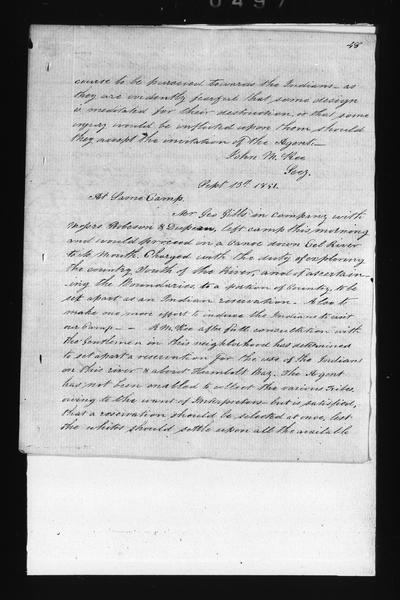 0497
48
course to be pursued towards the Indians as
they are evidently fearful that some design
is meditated for their destruction, or that some
injury would be inflicted upon them should
they accept the invitation of the Agent.—
John McKee
Secy.
Sept 13th. 1851.
At Same Camp.
Mr Geo Gibbs in company with
Messrs Robeson & Dupern, left camp this morning
and would proceed in a Canoe down Eel River
to its Mouth. Charged with the duty of exploring
the country South of the River, and of ascertain-
ing the Boundaries to a portion of Country, to be
set apart as an Indian reservation. Also to
make one more effort to induce the Indians to visit
our Camp — — R. McKee after full consultation with
the Gentlemen in this neighborhood has determined
to set apart a reservation for the use of the Indians
on this river & about Humbolt Bay. The Agent
has not been enabled to collect the various Tribes,
owing to the want of Interpreters but is satisfied,
that a reservation should be selected at once, lest
the whites should settle upon all the available